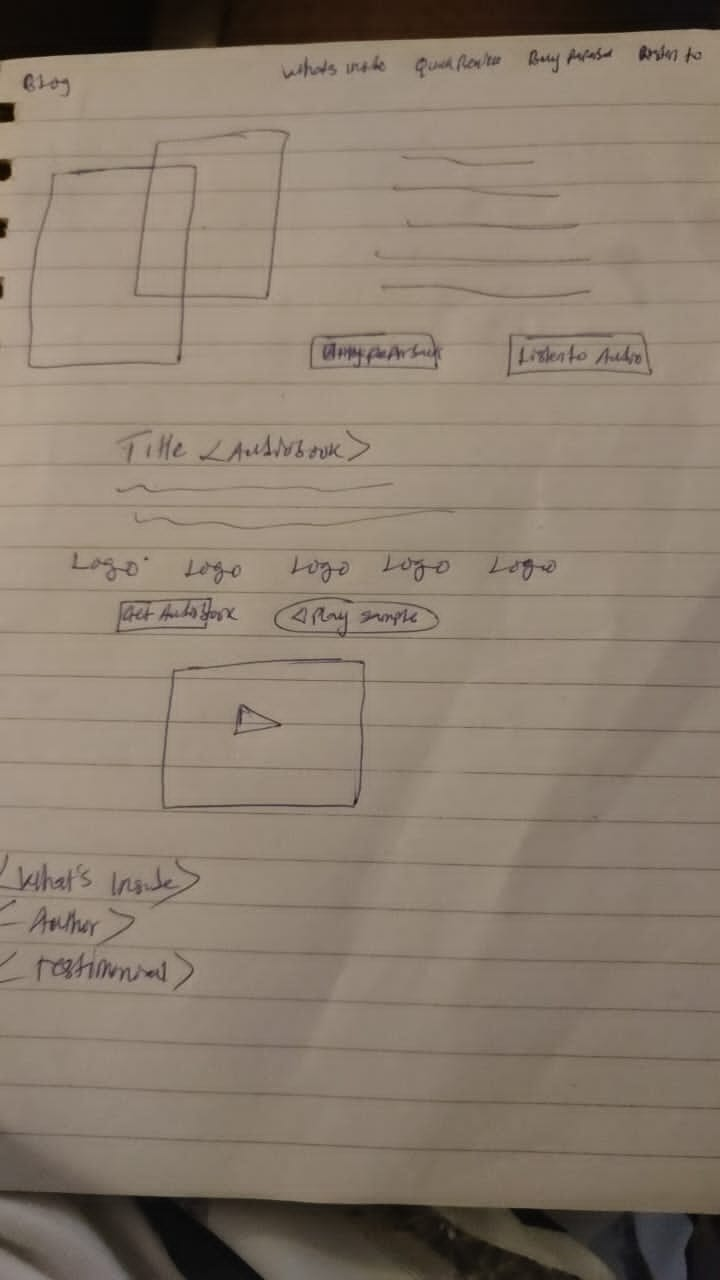 Blog
Whats inside Quick Review Buy Listen to
Listen to Audio
Title <Audiobook>
Logo Logo Logo Logo Logo
Get Audiobook Play sample
<What's Inside>
<Author>
<Testimonial>